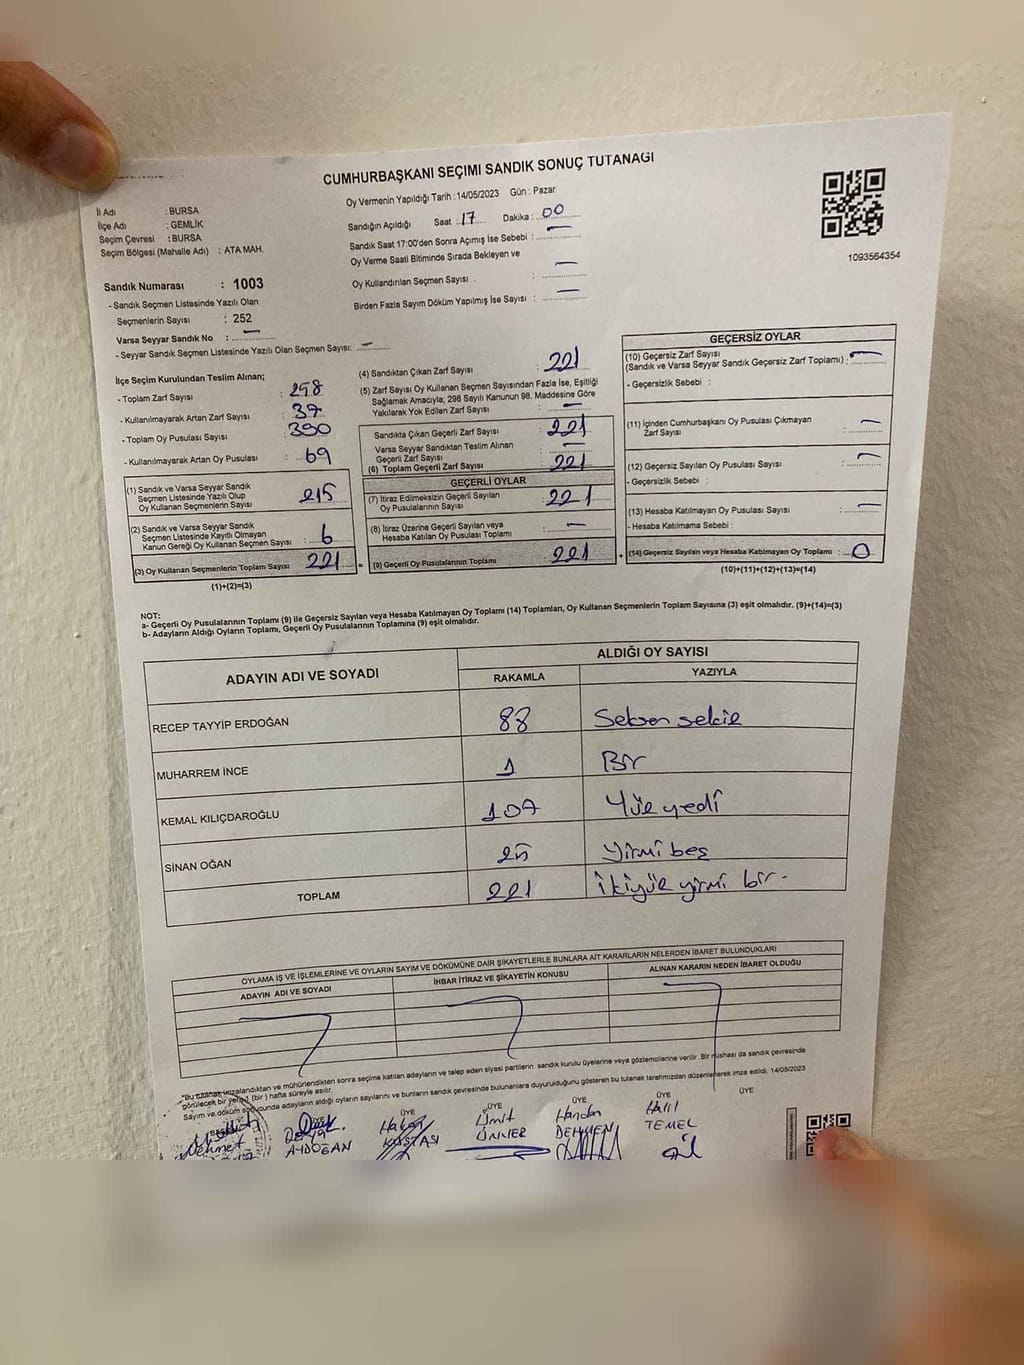 CUMHURBAŞKANI SEÇİMİ SANDIK SONUÇ TUTANAĞI
Oy Vermenin Yapıldığı Tarih :14/05/2023 Gün : Pazar
İl Adı : BURSA
İlçe Adı : GEMLİK
Seçim Çevresi : BURSA
Seçim Bölgesi (Mahalle Adı) : ATA MAH.
Sandığın Açıldığı Saat : 17 Dakika : 00
Sandık Saat 17:00'den Sonra Açımış İse Sebebi : —
Oy Verme Saati Bitiminde Sırada Bekleyen ve
Oy Kullandırılan Seçmen Sayısı : —
Birden Fazla Sayım Döküm Yapılmış İse Sayısı : —
1093564354
Sandık Numarası : 1003
- Sandık Seçmen Listesinde Yazılı Olan
Seçmenlerin Sayısı : 252
Varsa Seyyar Sandık No : —
- Seyyar Sandık Seçmen Listesinde Yazılı Olan Seçmen Sayısı: —
İlçe Seçim Kurulundan Teslim Alınan;
- Toplam Zarf Sayısı : 258
- Kullanılmayarak Artan Zarf Sayısı : 37
- Toplam Oy Pusulası Sayısı : 390
- Kullanılmayarak Artan Oy Pusulası : 69
(1) Sandık ve Varsa Seyyar Sandık
Seçmen Listesinde Yazılı Olup
Oy Kullanan Seçmenlerin Sayısı : 215
(2) Sandık ve Varsa Seyyar Sandık
Seçmen Listesinde Kayıtlı Olmayan
Kanun Gereği Oy Kullanan Seçmen Sayısı : 6
(3) Oy Kullanan Seçmenlerin Toplam Sayısı : 221
(1)+(2)=(3)
(4) Sandıktan Çıkan Zarf Sayısı : 221
(5) Zarf Sayısı Oy Kullanan Seçmen Sayısından Fazla İse, Eşitliği
Sağlamak Amacıyla; 298 Sayılı Kanunun 98. Maddesine Göre
Yakılarak Yok Edilen Zarf Sayısı : —
Sandıkta Çıkan Geçerli Zarf Sayısı : 221
Varsa Seyyar Sandıktan Teslim Alınan
Geçerli Zarf Sayısı : —
(6) Toplam Geçerli Zarf Sayısı : 221
GEÇERLİ OYLAR
(7) İtiraz Edilmeksizin Geçerli Sayılan
Oy Pusulalarının Sayısı : 221
(8) İtiraz Üzerine Geçerli Sayılan veya
Hesaba Katılan Oy Pusulası Toplamı : —
= (9) Geçerli Oy Pusulalarının Toplamı : 221 +
GEÇERSİZ OYLAR
(10) Geçersiz Zarf Sayısı
(Sandık ve Varsa Seyyar Sandık Geçersiz Zarf Toplamı) : —
- Geçersizlik Sebebi :
(11) İçinden Cumhurbaşkanı Oy Pusulası Çıkmayan
Zarf Sayısı : —
(12) Geçersiz Sayılan Oy Pusulası Sayısı : —
- Geçersizlik Sebebi :
(13) Hesaba Katılmayan Oy Pusulası Sayısı : —
- Hesaba Katılmama Sebebi :
(14) Geçersiz Sayılan veya Hesaba Katılmayan Oy Toplamı : 0
(10)+(11)+(12)+(13)=(14)
NOT:
a- Geçerli Oy Pusulalarının Toplamı (9) ile Geçersiz Sayılan veya Hesaba Katılmayan Oy Toplamı (14) Toplamları, Oy Kullanan Seçmenlerin Toplam Sayısına (3) eşit olmalıdır. (9)+(14)=(3)
b- Adayların Aldığı Oyların Toplamı, Geçerli Oy Pusulalarının Toplamına (9) eşit olmalıdır.
ADAYIN ADI VE SOYADI ALDIĞI OY SAYISI
RAKAMLA YAZIYLA
RECEP TAYYİP ERDOĞAN 88 Seksen sekiz
MUHARREM İNCE 1 Bir
KEMAL KILIÇDAROĞLU 107 Yüz yedi
SİNAN OĞAN 25 Yirmi beş
TOPLAM 221 İkiyüz yirmi bir.
OYLAMA İŞ VE İŞLEMLERİNE VE OYLARIN SAYIM VE DÖKÜMÜNE DAİR ŞİKAYETLERLE BUNLARA AİT KARARLARIN NELERDEN İBARET BULUNDUKLARI
ADAYIN ADI VE SOYADI İHBAR İTİRAZ VE ŞİKAYETİN KONUSU ALINAN KARARIN NEDEN İBARET OLDUĞU
"Bu tutanak imzalandıktan ve mühürlendikten sonra seçime katılan adayların ve talep eden siyasi partilerin sandık kurulu üyelerine veya gözlemcilerine verilir. Bir nüshası da sandık çevresinde
görülecek bir yere 1 (bir) hafta süreyle asılır.
Sayım ve döküm sonucunda adayların aldığı oyların sayılarını ve bunların sandık çevresinde bulunanlara duyurulduğunu gösteren bu tutanak tarafımızdan düzenlenerek imza edildi. 14/05/2023
ÜYE ÜYE ÜYE ÜYE ÜYE
Mehmet
AYDOĞAN
Hakan
Ümit
ÜNVER
Handan
Halil
TEMEL